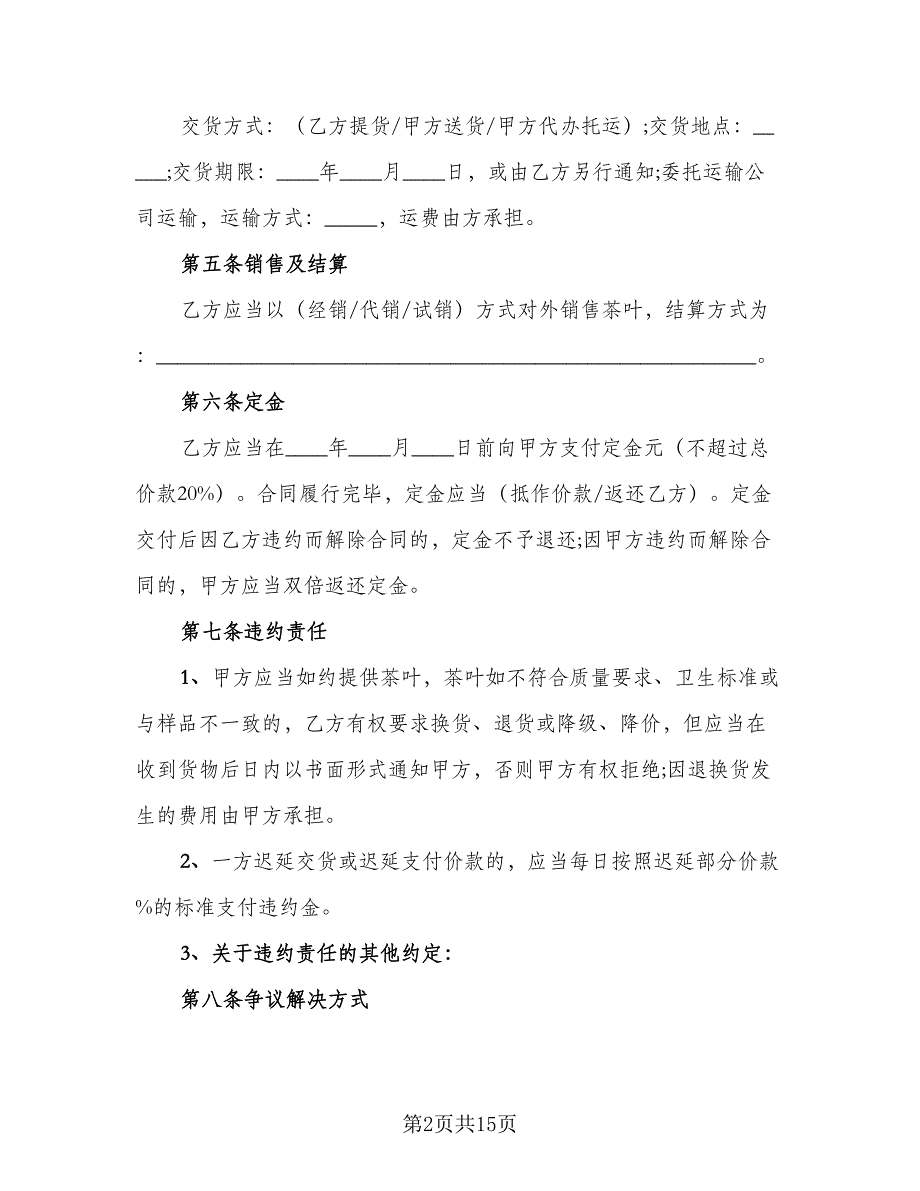 交货方式：（乙方提货/甲方送货/甲方代办托运）;交货地点：__
___;交货期限：____年____月____日，或由乙方另行通知;委托运输公
司运输，运输方式：_____，运费由方承担。
第五条销售及结算
乙方应当以（经销/代销/试销）方式对外销售茶叶，结算方式为
：_________________________________________________________。
第六条定金
乙方应当在____年____月____日前向甲方支付定金元（不超过总
价款20%）。合同履行完毕，定金应当（抵作价款/返还乙方）。定金
交付后因乙方违约而解除合同的，定金不予退还;因甲方违约而解除合
同的，甲方应当双倍返还定金。
第七条违约责任
1、甲方应当如约提供茶叶，茶叶如不符合质量要求、卫生标准或
与样品不一致的，乙方有权要求换货、退货或降级、降价，但应当在
收到货物后日内以书面形式通知甲方，否则甲方有权拒绝;因退换货发
生的费用由甲方承担。
2、一方迟延交货或迟延支付价款的，应当每日按照迟延部分价款
%的标准支付违约金。
3、关于违约责任的其他约定：
第八条争议解决方式
第2页共15页